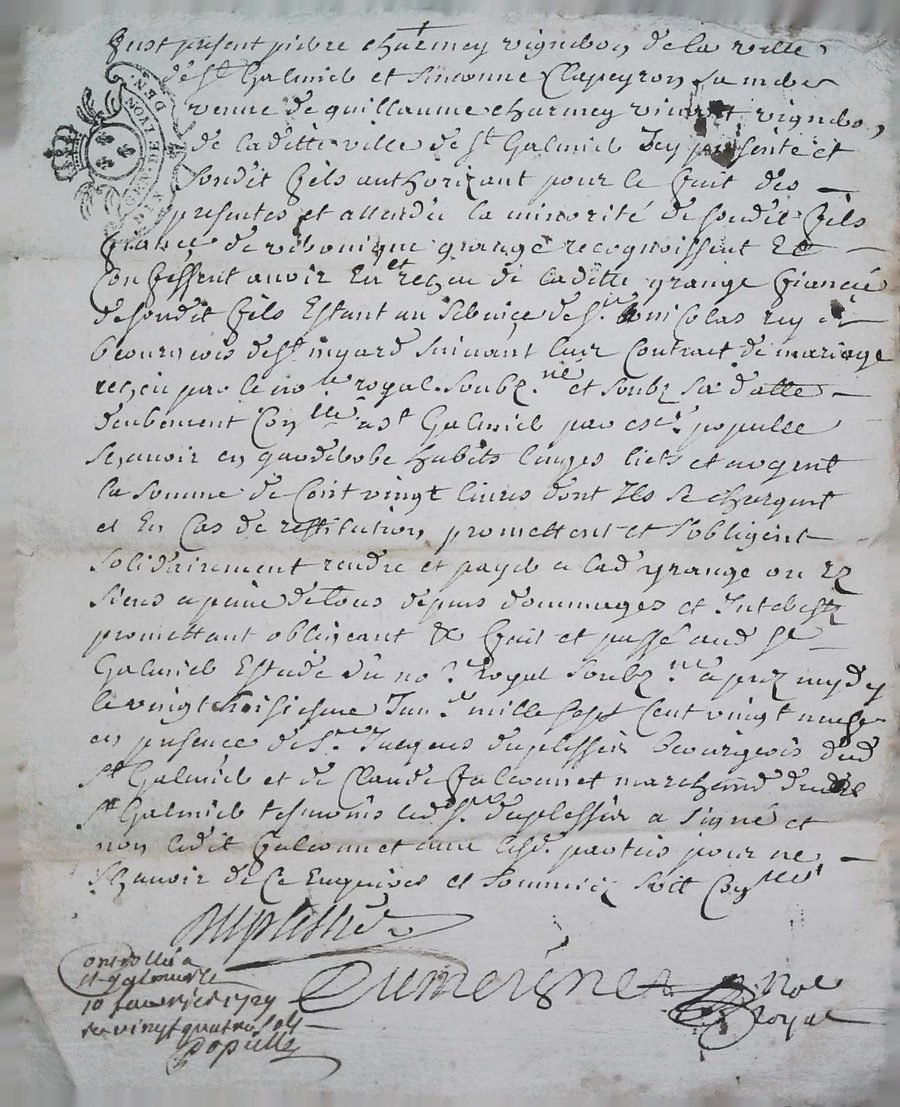 fust présent pierre charmey vigneron de la ville
de st Galmieb et simonne Clapeyron sa mère
veuve de guillaume charmey vivant vigneron
de laditte ville de st Galmieb Icy présente et
sondit fils authorizant pour le fait des
présentes et attendu la minorité de sondit fils
fiancée de véronique grange recognoissent et
Confessent avoir Eu et reçeu de laditte grange fiancée
de sondit fils Estant au service de sr nicolas rey
bourgeois de st suivant leur Contract de mariage
reçeu par le nore royal soubzné et soubz sa datte
deubement Conllé a st Galmieb par populle
sçavoir en garderobe habits linges licts et argent
la somme de Cent vingt livres dont Ils se chargent
et En Cas de restitution promettent et sobligent
solidairement rendre et payer a lad grange ou ez
siens a peine de tous depens dommages et Interestz
promettant obligeant &c fait et passé aud st
Galmieb Estude du nore Royal soubzné apres mydy
le vingt troisiesme Janer mille sept Cent vingt neufz
en présence de sr Jacques duplessis Bourgeois dud
st Galmieb et de Claude falconnet marchand dud
st Galmieb tesmoins led sr duplessis a signé et
non ledit falconnet avec lesd parties pour ne
sçavoir de Ce Enquises et sommées soit Conllé
duplessis
Controllé a
st galmier le
10 febvrier 1729
rx vingt quatre sols
Populle
Dumeigne
nore
Royal
GENERALITE DE LYON